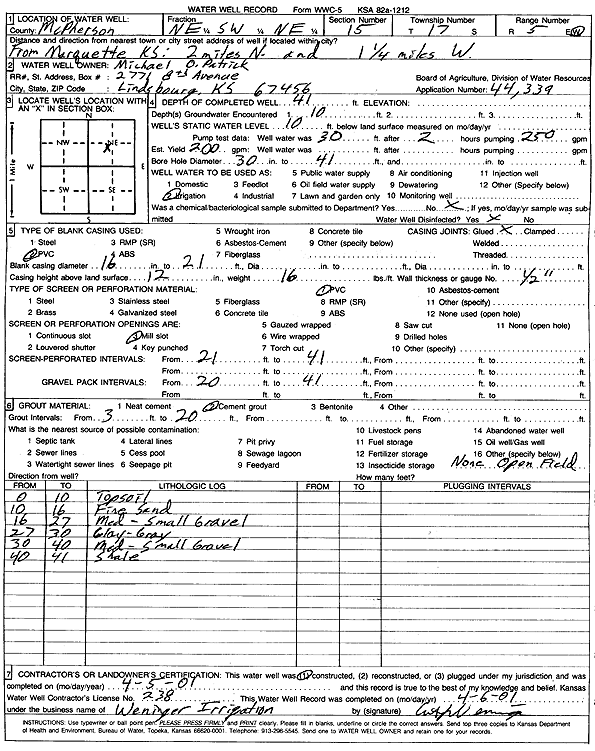 WATER WELL RECORD Form WWC-5 KSA 82a-1212
1 LOCATION OF WATER WELL: Fraction Section Number Township Number Range Number
County: McPherson NE ¼ SW ¼ NE ¼ 15 T 17 S R 5 E/W
Distance and direction from nearest town or city street address of well if located within city?
From Marquette KS: 2 miles N. and 1 1/4 miles W.
2 WATER WELL OWNER: Michael O. Patrick
RR#, St. Address, Box # : 2771 8th Avenue Board of Agriculture, Division of Water Resources
City, State, ZIP Code : Lindsbourg, KS 67456 Application Number: 44,339
3 LOCATE WELL'S LOCATION WITH AN "X" IN SECTION BOX:
N
NW NE
W E
SW SE
S
1 Mile
X
4 DEPTH OF COMPLETED WELL 41 ft. ELEVATION:
Depth(s) Groundwater Encountered 1. 10 ft. 2. ft. 3. ft.
WELL'S STATIC WATER LEVEL 10 ft. below land surface measured on mo/day/yr
Pump test data: Well water was 30 ft. after 2 hours pumping 250 gpm
Est. Yield 200 gpm: Well water was ft. after hours pumping gpm
Bore Hole Diameter 30 in. to 41 ft., and in. to ft.
WELL WATER TO BE USED AS: 5 Public water supply 8 Air conditioning 11 Injection well
1 Domestic 3 Feedlot 6 Oil field water supply 9 Dewatering 12 Other (Specify below)
2 Irrigation 4 Industrial 7 Lawn and garden only 10 Monitoring well
Was a chemical/bacteriological sample submitted to Department? Yes No X ; If yes, mo/day/yr sample was submitted Water Well Disinfected? Yes X No
5 TYPE OF BLANK CASING USED: 5 Wrought iron 8 Concrete tile CASING JOINTS: Glued X Clamped
1 Steel 3 RMP (SR) 6 Asbestos-Cement 9 Other (specify below) Welded
2 PVC 4 ABS 7 Fiberglass Threaded
Blank casing diameter 16 in. to 21 ft., Dia in. to ft., Dia in. to ft.
Casing height above land surface 12 in., weight 16 lbs./ft. Wall thickness or gauge No. 1/2"
TYPE OF SCREEN OR PERFORATION MATERIAL: 7 PVC 10 Asbestos-cement
1 Steel 3 Stainless steel 5 Fiberglass 8 RMP (SR) 11 Other (specify)
2 Brass 4 Galvanized steel 6 Concrete tile 9 ABS 12 None used (open hole)
SCREEN OR PERFORATION OPENINGS ARE: 5 Gauzed wrapped 8 Saw cut 11 None (open hole)
1 Continuous slot 3 Mill slot 6 Wire wrapped 9 Drilled holes
2 Louvered shutter 4 Key punched 7 Torch cut 10 Other (specify)
SCREEN-PERFORATED INTERVALS: From 21 ft. to 41 ft., From ft. to ft.
From ft. to ft., From ft. to ft.
GRAVEL PACK INTERVALS: From 20 ft. to 41 ft., From ft. to ft.
From ft. to ft., From ft. to ft.
6 GROUT MATERIAL: 1 Neat cement 2 Cement grout 3 Bentonite 4 Other
Grout Intervals: From 3 ft. to 20 ft., From ft. to ft., From ft. to ft.
What is the nearest source of possible contamination: 10 Livestock pens 14 Abandoned water well
1 Septic tank 4 Lateral lines 7 Pit privy 11 Fuel storage 15 Oil well/Gas well
2 Sewer lines 5 Cess pool 8 Sewage lagoon 12 Fertilizer storage 16 Other (specify below)
3 Watertight sewer lines 6 Seepage pit 9 Feedyard 13 Insecticide storage None Open Field
Direction from well? How many feet?
FROM TO LITHOLOGIC LOG FROM TO PLUGGING INTERVALS
0 10 Topsoil
10 16 Fine Sand
16 27 Med - Small Gravel
27 30 Clay-Gray
30 40 Med - Small Gravel
40 41 Shale
7 CONTRACTOR'S OR LANDOWNER'S CERTIFICATION: This water well was (1) constructed, (2) reconstructed, or (3) plugged under my jurisdiction and was
completed on (mo/day/year) 4-5-01 and this record is true to the best of my knowledge and belief. Kansas
Water Well Contractor's License No. 238 This Water Well Record was completed on (mo/day/yr) 4-6-01
under the business name of Weninger Irrigation by (signature)
INSTRUCTIONS: Use typewriter or ball point pen. PLEASE PRESS FIRMLY and PRINT clearly. Please fill in blanks, underline or circle the correct answers. Send top three copies to Kansas Department
of Health and Environment, Bureau of Water, Topeka, Kansas 66620-0001. Telephone: 913-296-5545. Send one to WATER WELL OWNER and retain one for your records.